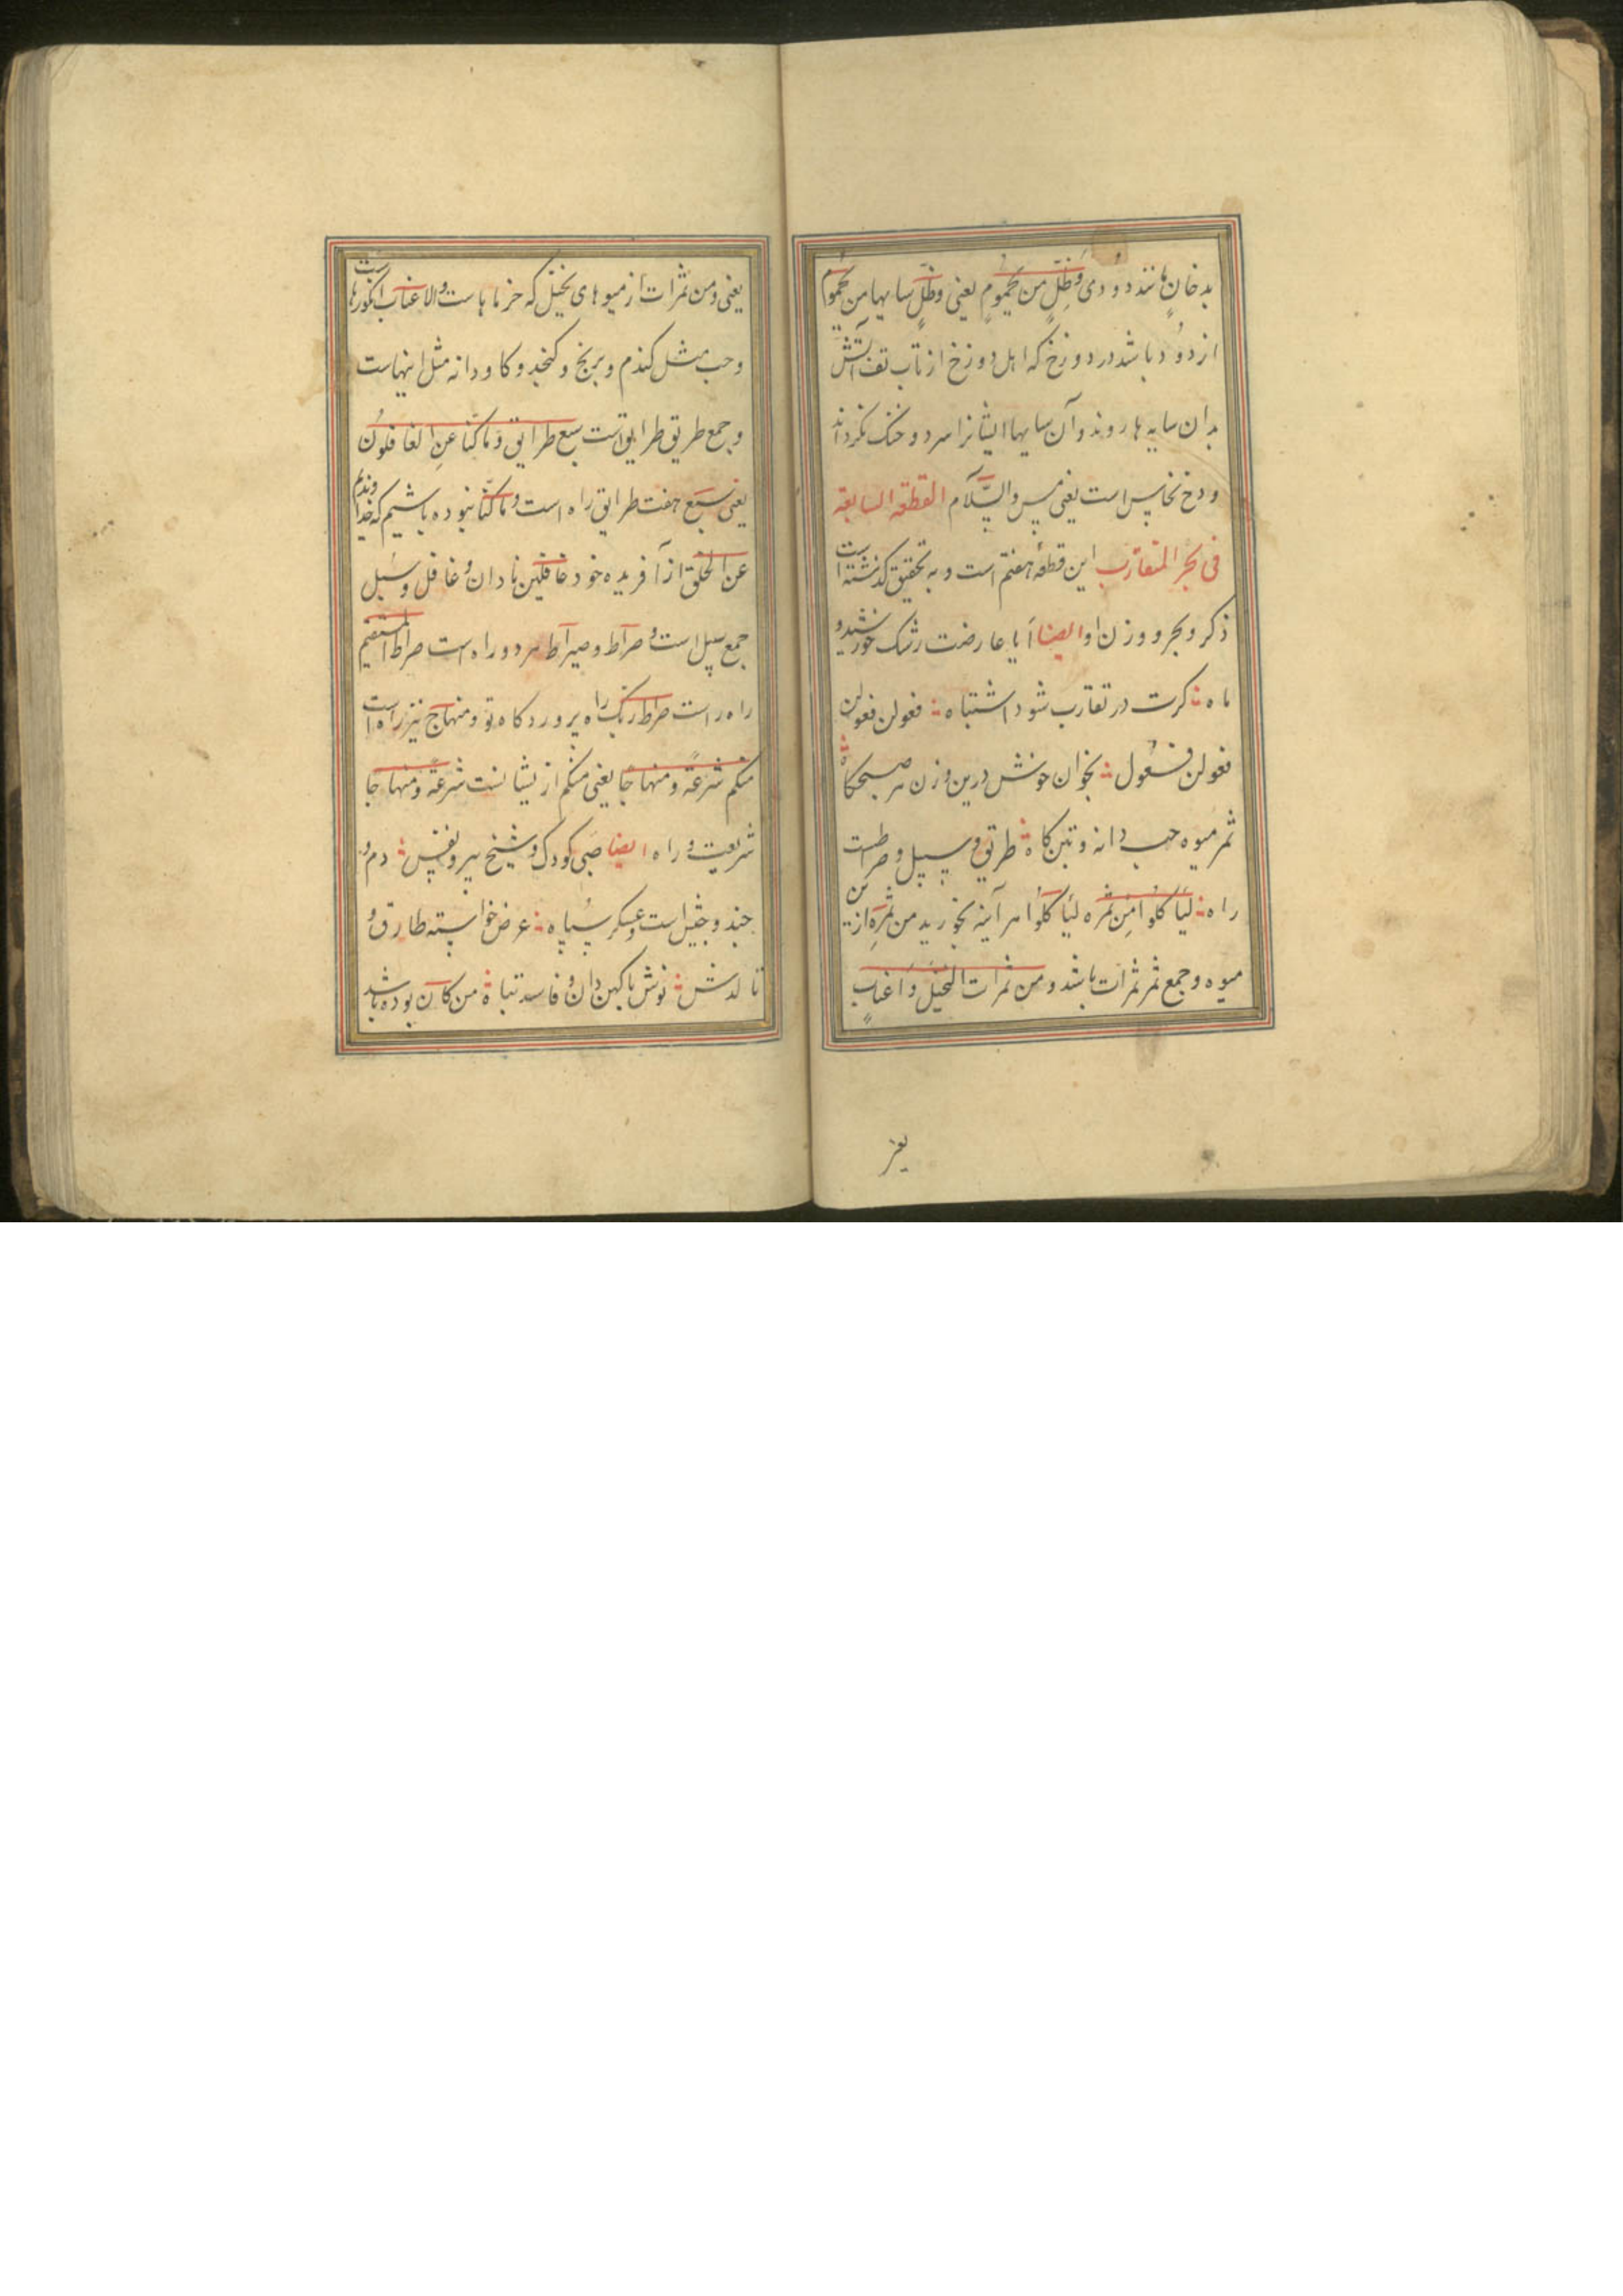 بدخانٍ مانند دودی وَظِلٍّ من یَحمُومٍ یعنی وظلٍّ سایها من یحموم
از دود باشد در دوزخ که اهل دوزخ از تاب تف آتش
بدان سایه ها روند و آن سایها ایشانرا سرد و خنک نکرداند
و دخ نحاس است یعنی مس والسَّلام القطعه السابعة
فی بحر المتقارب این قطعهٔ هفتم است و به تحقیق کذشته است
ذکر و بحر و وزن او ایضا اَیا عارضت رشک خورشید و
ماه کرت در تقارب شود اشتباه فعولن فعولن
فعولن فعول بخوان خوش درین وزن هر صبحکاه
ثمر میوه حب دانه و تبن کاه طریق و سبیل و صراطست
راه لیَاکلوا مِن ثمره لیَاکلُوا هر آینه بخورید من ثمَرِه از
میوه و جمع ثمر ثمرَات باشد و من ثمرات النخیل وَاَعنابٍ
یعنی
یعنی ومن ثمرات از میوهای نخیل که خرماهاست والاعناب انکورهاست
وحب مثل کندم و برنج و کنجد و کاودانه مثل اینهاست
وجمع طریق طرایق است سبع طرایق وَمَا کنّا عنِ الغافلوُن
یعنی سَبَع هفت طرایق راه است ومَا کنّا نبوده باشیم که خداوندیم
عن الخلق از آفریده خود غافلین نادان و غافل وسُبل
جمع سبیل است و صرَاط و صیرَاط هر دو راه است صراط المستقیم
راه راست صراط ربّک راه پروردکاه تو و منهَاج نیز راه است
منکم شرعَةً ومنهاجًا یعنی منکم از یشانست شرعَة ومنهاجا
شریعت و راه ایضا صَبی کودک و شیخ پیر و نفس دم و
جند وجَیش است وعسکر سُپاه عرض خواسته طارق و
تالدش نوش با کهن دان و فاسد تباه من کانَ بوده باشد